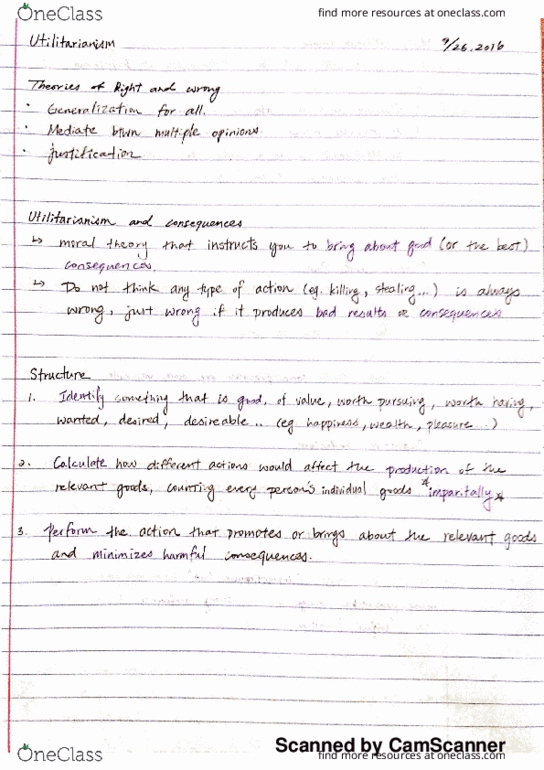 OneClass
find more resources at oneclass.com
Utilitarianism
9/26.2016
Theories of Right and wrong
· Generalization for all.
· Mediate btwn multiple opinions
· justification
Utilitarianism and consequences
↳ moral theory that instructs you to bring about good (or the best)
consequences.
↳ Do not think any type of action (eg. killing, stealing...) is always
wrong, just wrong if it produces bad results or consequences
Structure
1. Identify something that is good, of value, worth pursuing, worth having,
wanted, desired, desireable.. (eg happiness, wealth, pleasure...)
2. Calculate how different actions would affect the production of the
relevant goods, counting every person's individual goods *imparitally*
3. Perform the action that promotes or brings about the relevant goods
and minimizes harmful consequences.
Scanned by CamScanner
OneClass
find more resources at oneclass.com